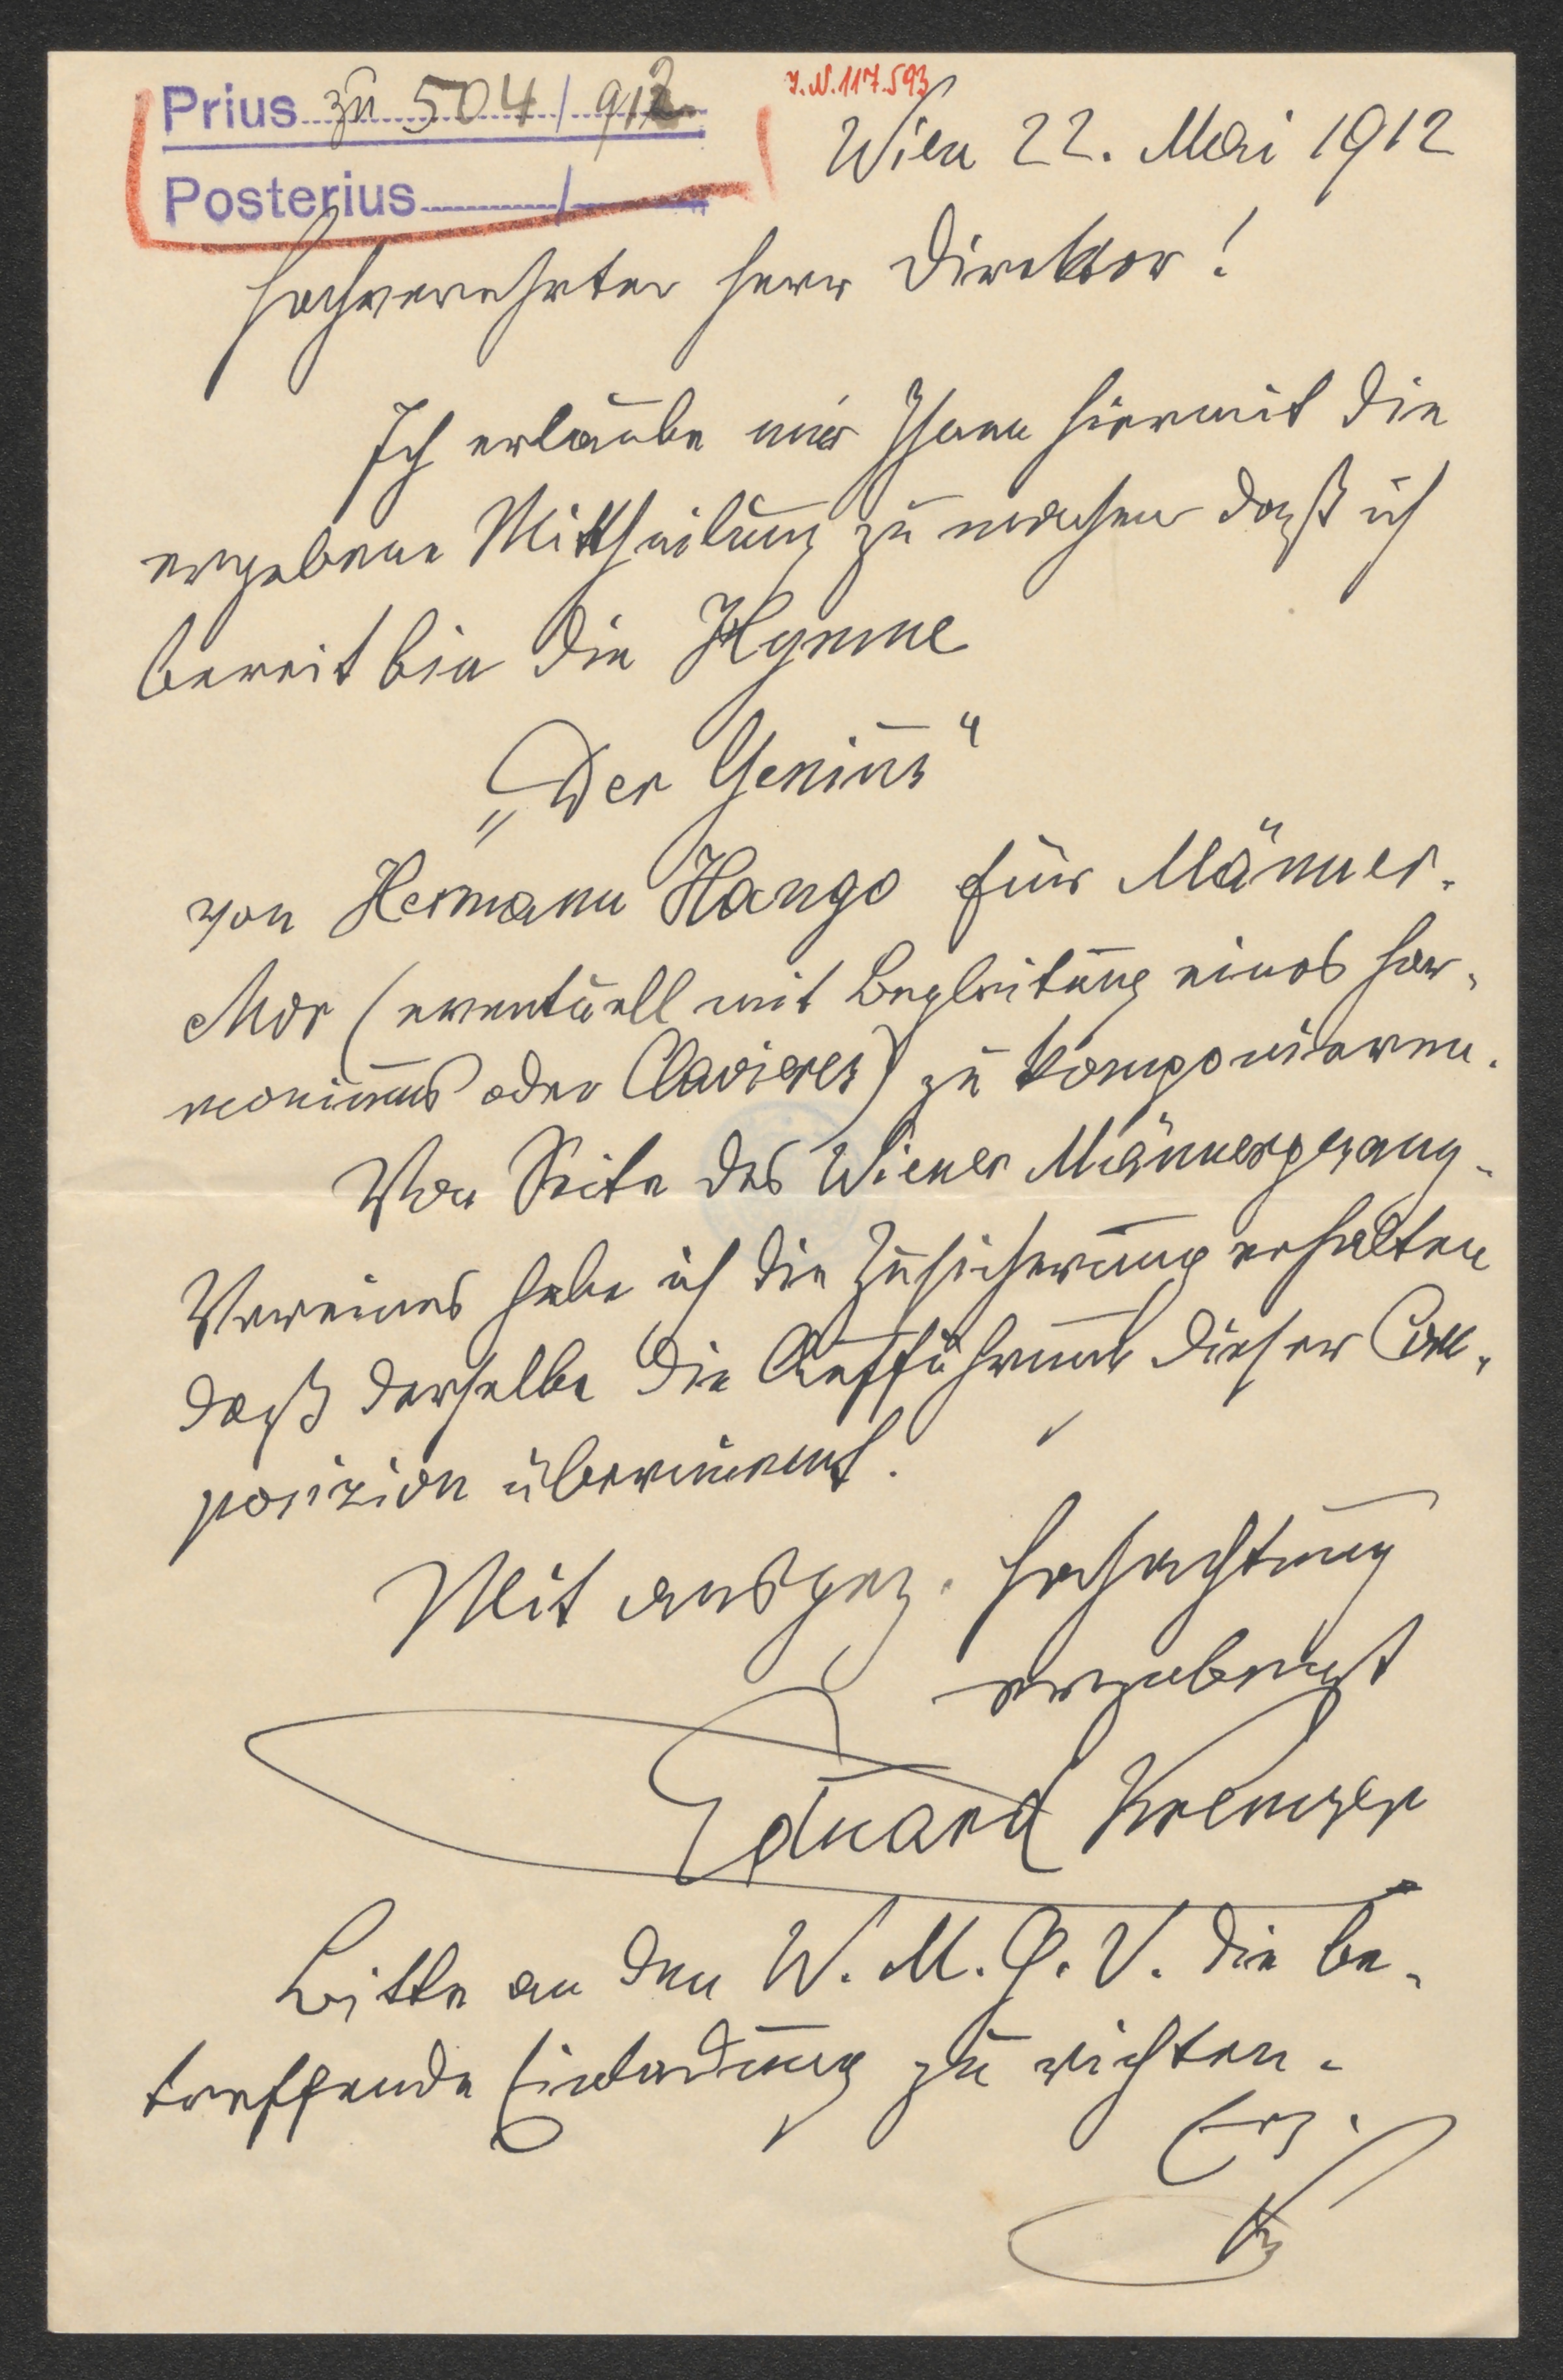 Prius zu 504/912
J.N. 117.593
Posterius /
Wien 22. Mai 1912
Hochverehrter Herr Direktor!
Ich erlaube mir Ihnen hiermit die
ergebene Mittheilung zu machen daß ich
bereit bin die Hymne
„Der Genius“
von Hermann Hango für Männer-
chor (eventuell mit Begleitung eines Har-
moniums oder Clavieres) zu komponieren.
Von Seite des Wiener Männergesang-
Vereines habe ich die Zusicherung erhalten
daß derselbe die Aufführung dieser Com-
posizion übernimmt.
Mit ausgez. Hochachtung
ergebenst
Eduard Kremser
Bitte an den W. M. G. V. die be-
treffende Einladung zu richten.
Erg.
K